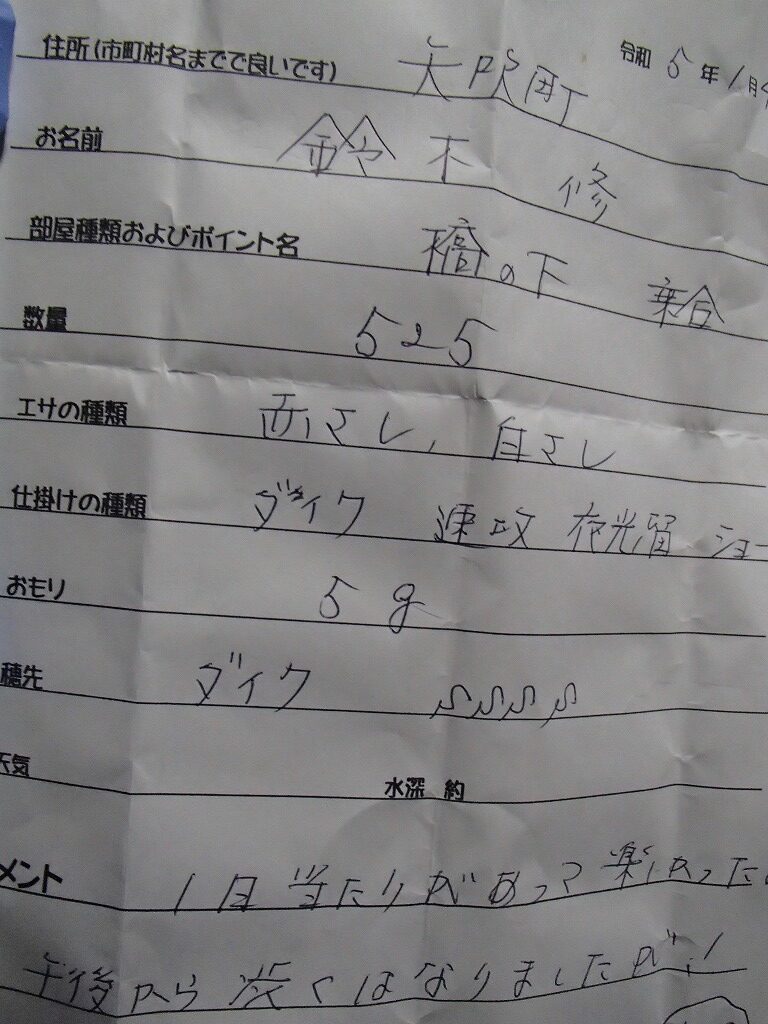 令和 5年1月
住所(市町村名までで良いです) 矢吹町
お名前 鈴木 修
部屋種類およびポイント名 橋の下 乗合
数量 525
エサの種類 赤サシ、白サシ
仕掛けの種類 ダイワ 速攻 夜光留 ショー
おもり 5g
穂先 ダイワ SSSS
天気 水深 約
メント 1日当たりがあって楽しかった
午後から渋くはなりましたが!